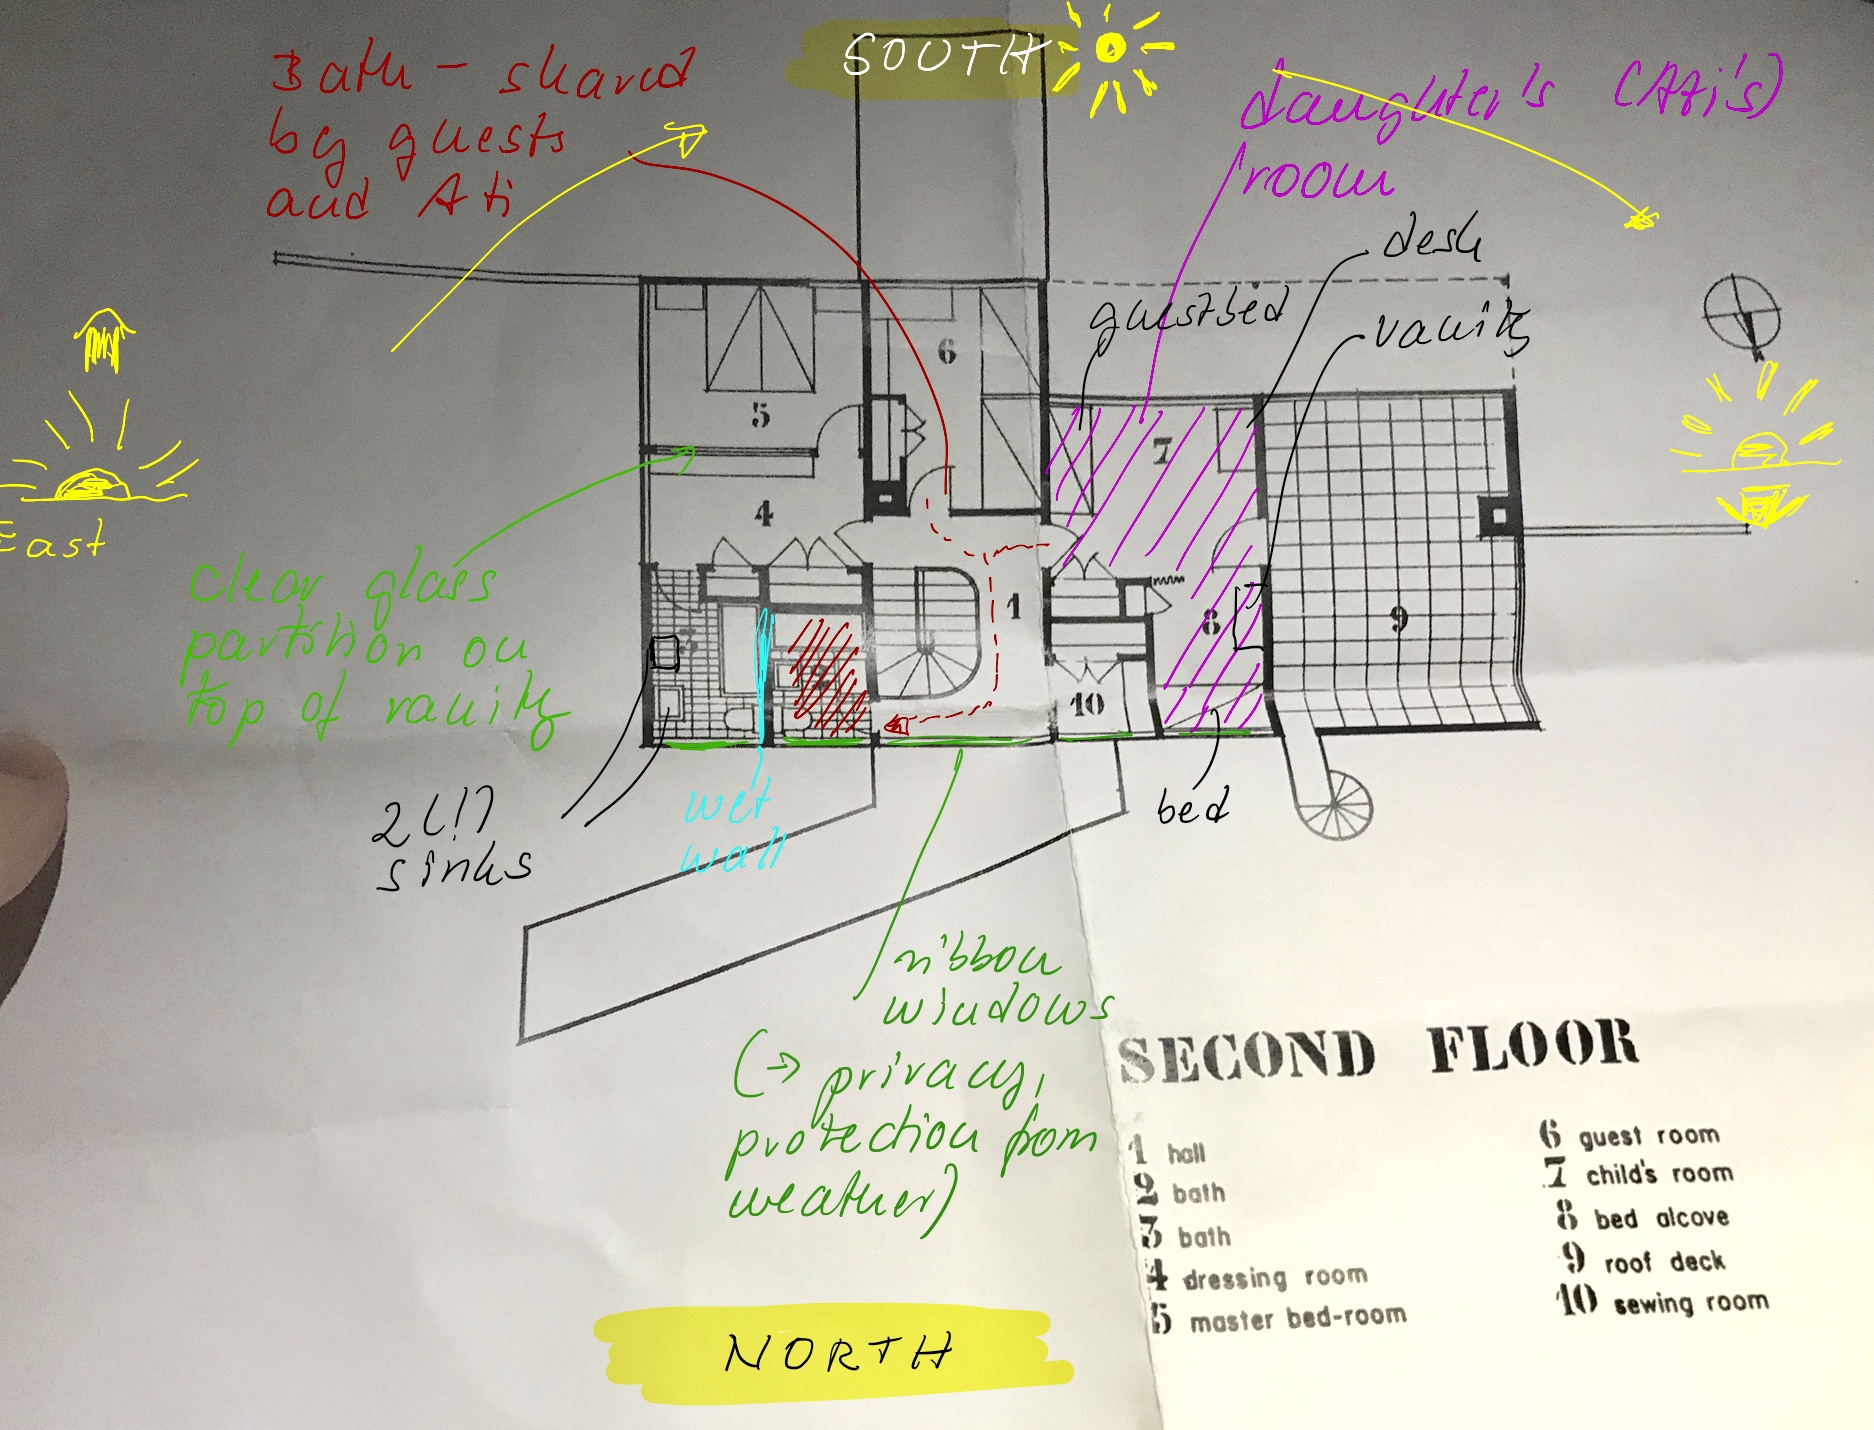 SOUTH
Bath - shared
by guests
and Ati
daughter's (Ati's)
room
desk
guestbed
vanity
6
5
7
4
East
clear glass
partition on
top of vanity
3
1
8
9
10
2(!)
sinks
wet
wall
bed
ribbon
windows
(→ privacy,
protection from
weather)
SECOND FLOOR
1 hall
2 bath
3 bath
4 dressing room
5 master bed-room
6 guest room
7 child's room
8 bed alcove
9 roof deck
10 sewing room
NORTH